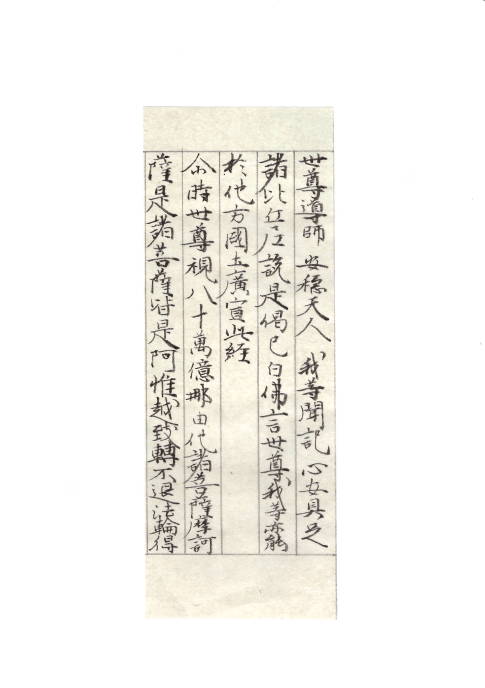 世尊導師 安穏天人 我等聞記 心安具足
諸比丘尼説是偈已白佛言世尊我等亦能
於他方國土廣宣此経
尒時世尊視八十萬億那由他諸菩薩摩訶
薩是諸菩薩皆是阿惟越致轉不退法輪得